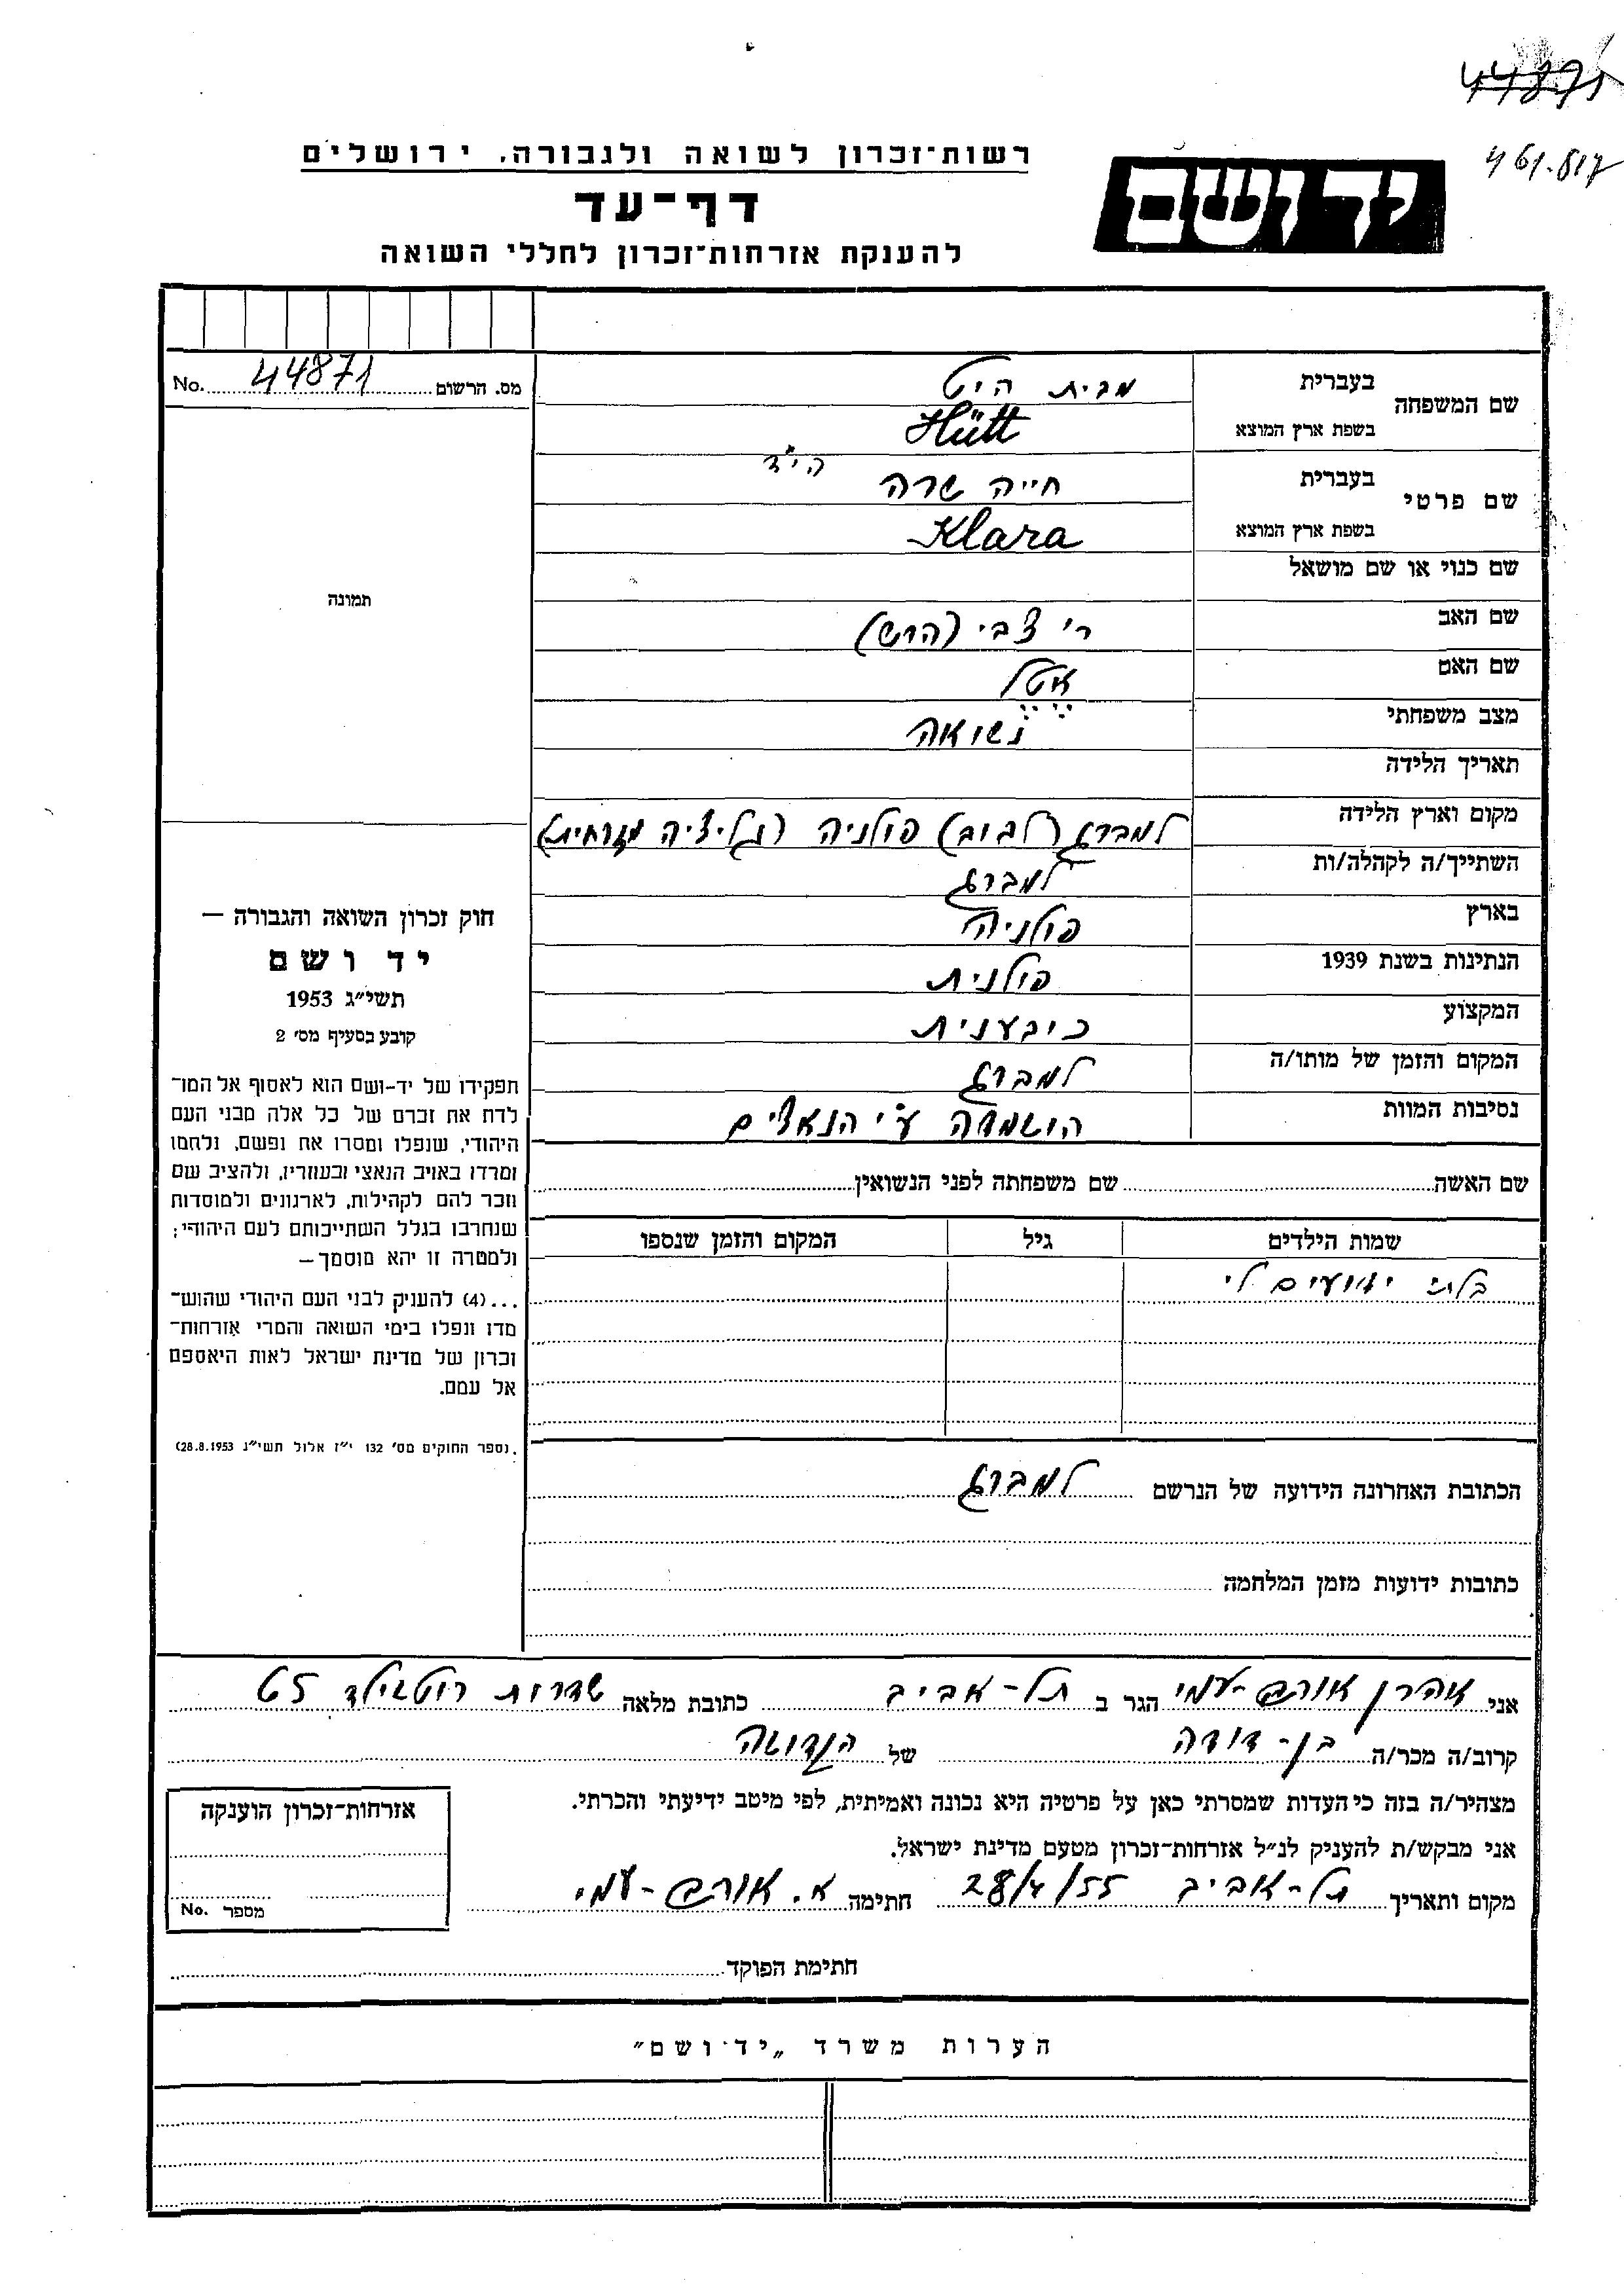 44871
461.817
רשות־זכרון לשואה ולגבורה, ירושלים
יד ושם
דף־עד
להענקת אזרחות־זכרון לחללי השואה
מס. הרשום 44871 No.
שם המשפחה בעברית מבית היט
בשפת ארץ המוצא Hütt
הי"ד
שם פרטי בעברית חייה שרה
בשפת ארץ המוצא Klara
שם כנוי או שם מושאל
תמונה
שם האב ר' צבי (הרש)
שם האם אטל
מצב משפחתי נשואה
תאריך הלידה
מקום וארץ הלידה למברג (לבוב) פולניה (גליציה מזרחית)
השתייך/ה לקהלה/ות למברג
בארץ פולניה
הנתינות בשנת 1939 פולנית
המקצוע כובענית
המקום והזמן של מותו/ה למברג
נסיבות המוות הושמדה ע"י הנאצים
חוק זכרון השואה והגבורה —
יד ושם
תשי״ג 1953
קובע בסעיף מס׳ 2
תפקידו של יד-ושם הוא לאסוף אל המו־
לדת את זכרם של כל אלה מבני העם
היהודי, שנפלו ומסרו את נפשם, נלחמו
ומרדו באויב הנאצי ובעוזריו, ולהציב שם
וזכר להם לקהילות, לארגונים ולמוסדות
שנחרבו בגלל השתייכותם לעם היהודי;
ולמטרה זו יהא מוסמך —
...(4) להעניק לבני העם היהודי שהוש־
מדו ונפלו בימי השואה והמרי אזרחות־
זכרון של מדינת ישראל לאות היאספם
אל עמם.
(ספר החוקים מס׳ 132 י״ז אלול תשי״ג 28.8.1953)
שם האשה שם משפחתה לפני הנשואין
שמות הילדים גיל המקום והזמן שנספו
בלתי ידועים לי
הכתובת האחרונה הידועה של הנרשם למברג
כתובות ידועות מזמן המלחמה
אני אהרן אורם-עמי הגר ב תל-אביב כתובת מלאה שדרות רוטשילד 57
קרוב/ה מכר/ה בן-דודה של הנדונה
מצהיר/ה בזה כי העדות שמסרתי כאן על פרטיה היא נכונה ואמיתית, לפי מיטב ידיעתי והכרתי.
אני מבקש/ת להעניק לנ״ל אזרחות־זכרון מטעם מדינת ישראל.
מקום ותאריך תל-אביב 28/4/55 חתימה א. אורם-עמי
אזרחות־זכרון הוענקה
מספר No.
חתימת הפוקד
הערות משרד „יד־ושם״